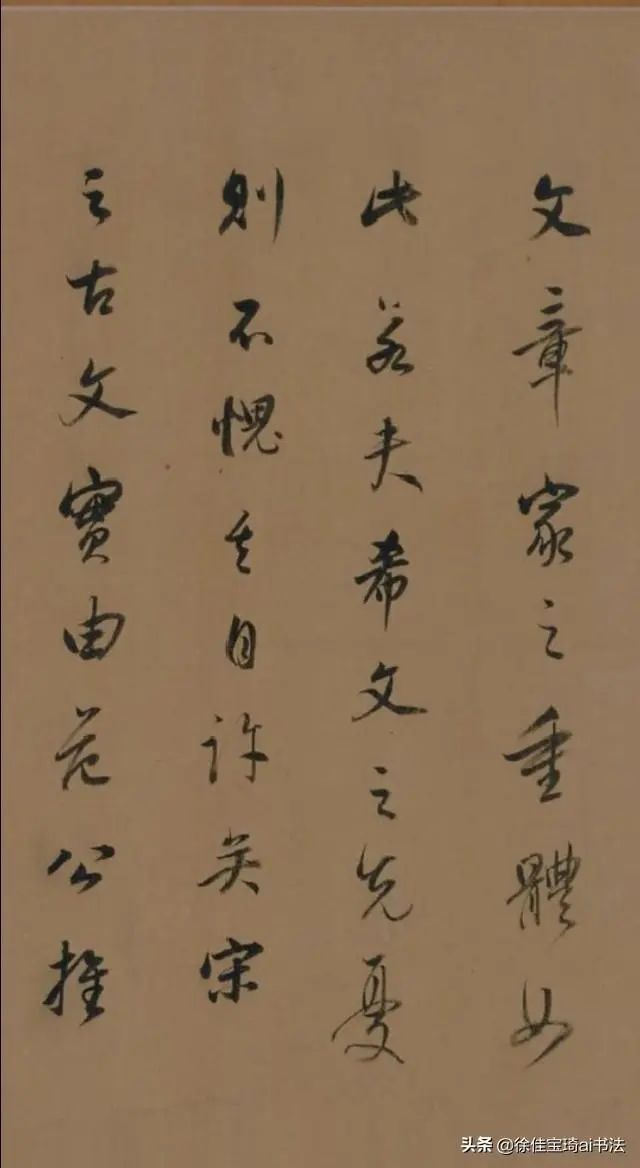 文章家之重體如
此若夫希文之先憂
則不愧其自許矣宋
之古文實由范公推
头条 @徐佳宝琦ai书法